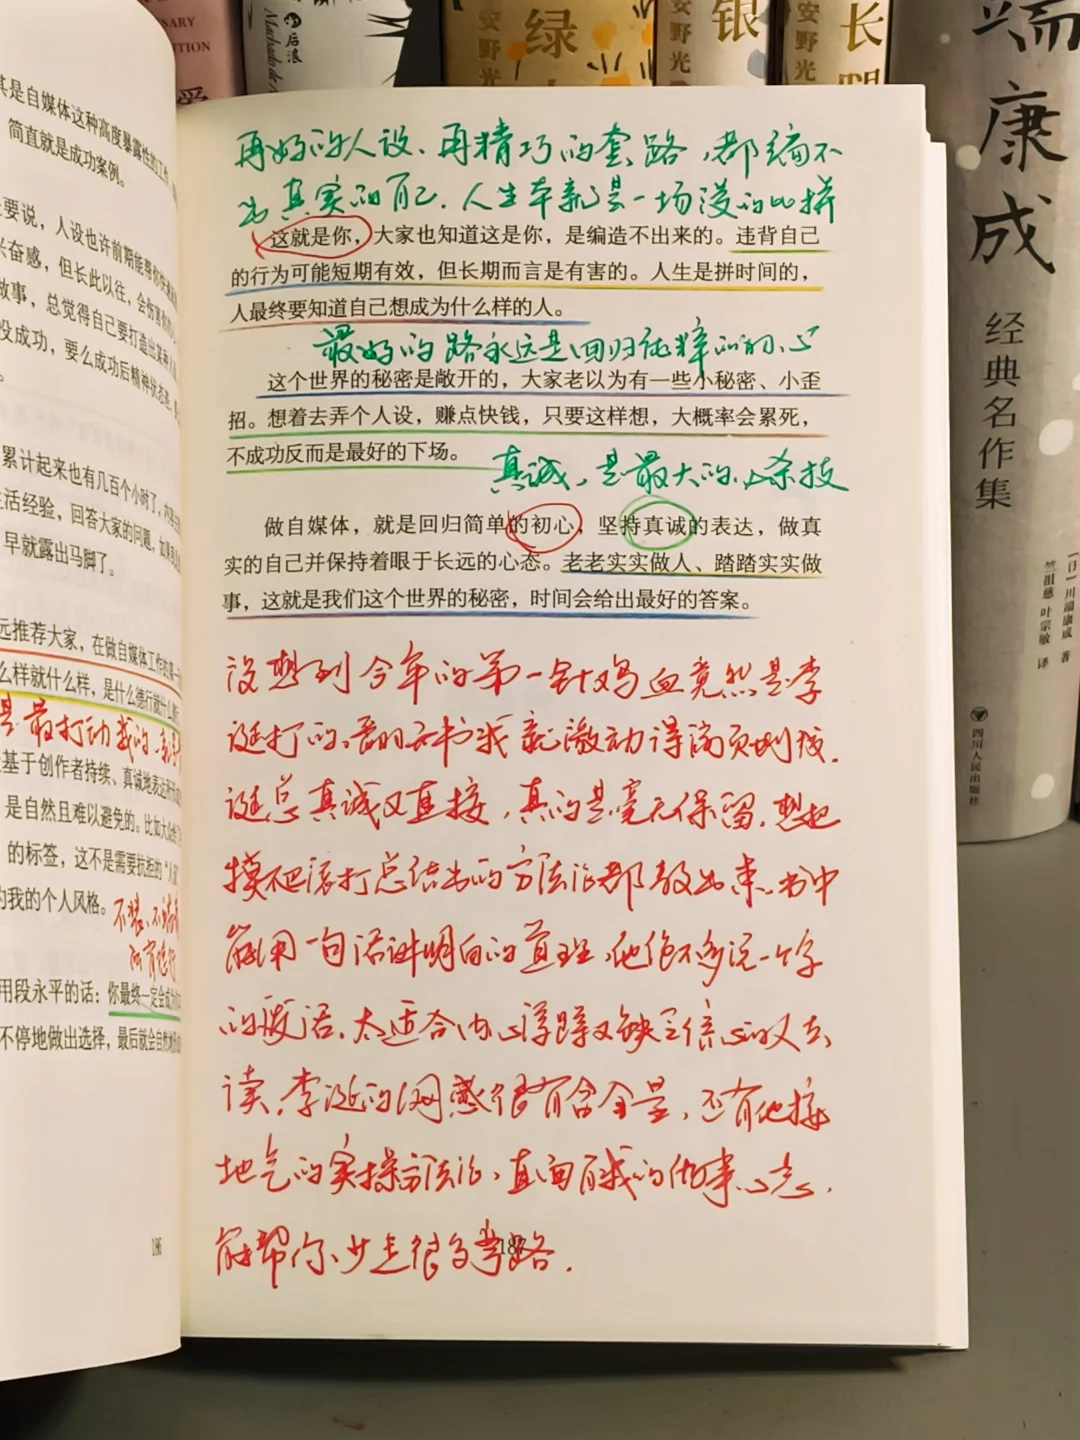 后浪
安野光
绿
安野光
银
安野
长
端
康成
经典名作集
[日] 川端康成 著
竺祖慈 叶宗敏 译
四川人民出版社
其是自媒体这种高度暴露性的工作
简直就是成功案例。
要说，人设也许前期能帮你
兴奋感，但长此以往，会伤害你
故事，总觉得自己要打造出某种人
没成功，要么成功后精神状态
累计起来也有几百个小时了，内
生活经验，回答大家的问题，如果
早就露出马脚了。
远推荐大家，在做自媒体工作的第一
么样就什么样，是什么德行就什么德行
是最打动我的一
基于创作者持续、真诚地表达
是自然且难以避免的。比如大
的标签，这不是需要抗拒的“人设”
的我的个人风格。
不装、不
用段永平的话：你最终一定会成为
不停地做出选择，最后就会自然地
186
再好的人设、再精巧的套路，都编不
出真实的自己．人生本就是一场漫长的比拼
这就是你，大家也知道这是你，是编造不出来的。违背自己
的行为可能短期有效，但长期而言是有害的。人生是拼时间的，
人最终要知道自己想成为什么样的人。
最好的路永远是回归纯粹的初心
这个世界的秘密是敞开的，大家老以为有一些小秘密、小歪
招。想着去弄个人设，赚点快钱，只要这样想，大概率会累死，
不成功反而是最好的下场。
真诚，是最大的必杀技
做自媒体，就是回归简单的初心，坚持真诚的表达，做真
实的自己并保持着眼于长远的心态。老老实实做人、踏踏实实做
事，这就是我们这个世界的秘密，时间会给出最好的答案。
没想到今年的第一针鸡血竟然是李
诞打的，翻开书我就激动得满页划线．
诞总真诚又直接，真的是毫无保留，想把
摸爬滚打总结出的方法论都教出来．书中
能用一句话讲明白的道理，他绝不多说一个字
的废话．太适合内心浮躁又缺乏信心的人去
读．李诞的网感很有含金量，还有他接
地气的实操方法论，直面自我的做事心态．
能帮你少走很多弯路．
187